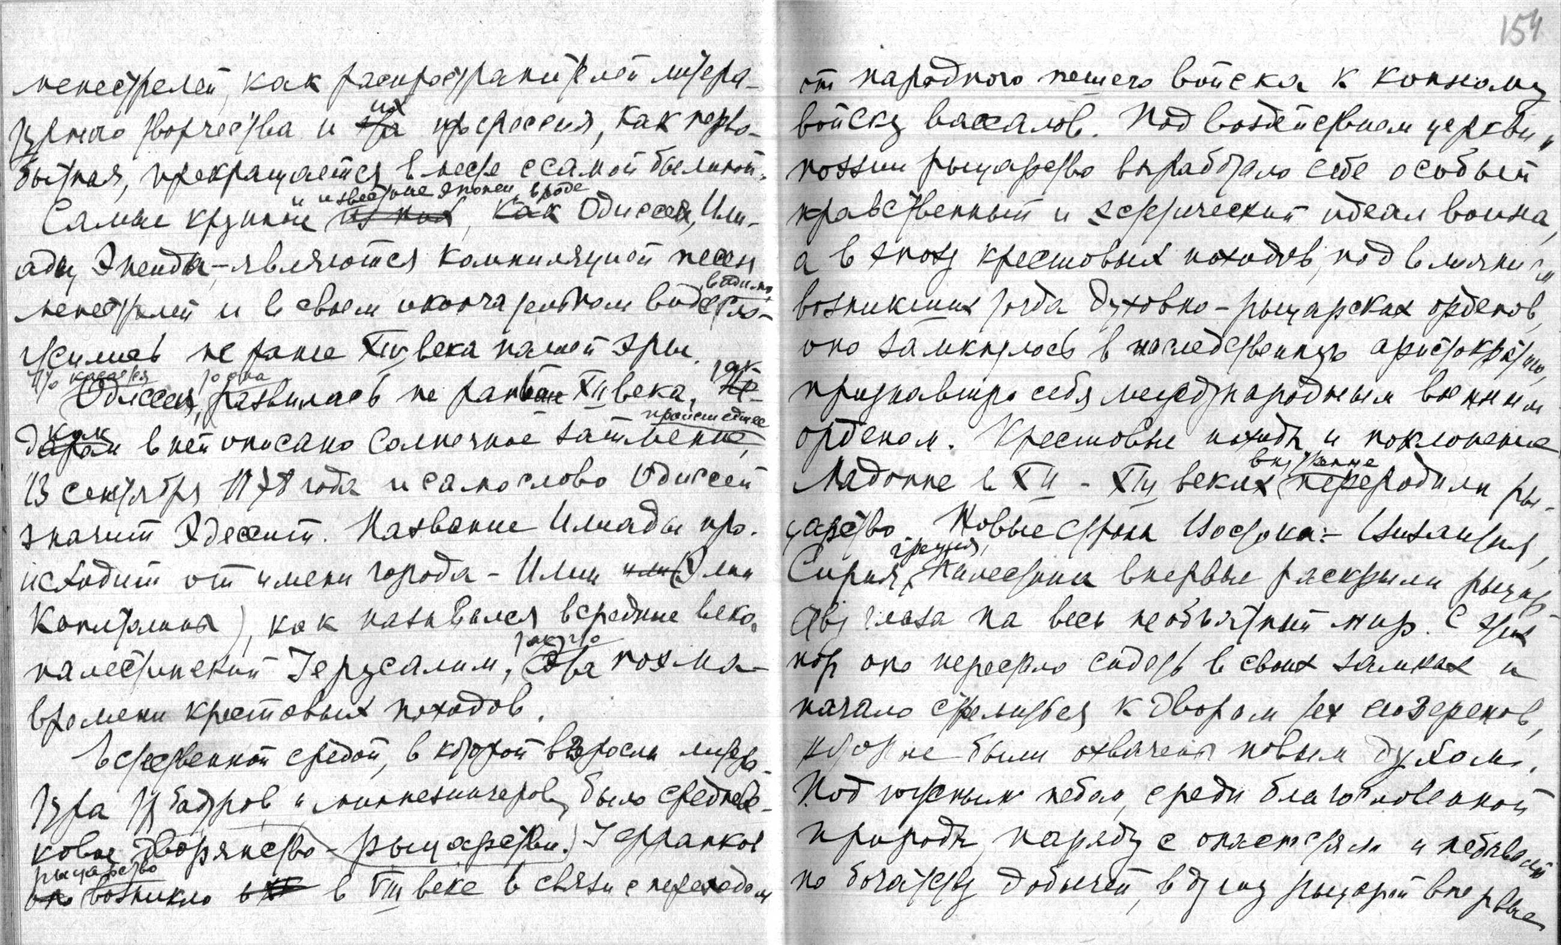 менестрелей, как распространителей литера-
турного творчества и их профессия, как перво-
бытная, прекращается вместе с самой былиной.
Самые крупные и известные эпопеи, вроде Одиссеи, Или-
ады, Энеиды, – являются компиляцией песен
менестрелей и в своем окончательном виде, видимо, сло-
жились не ранее XIII века нашей эры.
Что касается Одиссеи, то она развилась не ранее XII века, так
как в ней описано солнечное затмение, происшедшее
13 сентября 1178 года и само слово Одиссей
значит Эдессит. Название Илиады про-
исходит от имени города – Илии (Элии
Капитолины), как назывался в средние века
палестинский Иерусалим, так что поэма
времени крестовых походов.
Естественной средой, в которой взросла литера-
тура трубадуров и миннезингеров, было среднев-
ковое дворянство – рыцарство. Германское
рыцарство возникло в VIII веке в связи с переходом
154
от народного пешего войска к конному
войску вассалов. Под воздействием церкви и
поэзии рыцарство выработало себе особый
нравственный и эстетический идеал воина,
а в эпоху крестовых походов, под влиянием
возникших тогда духовно-рыцарских орденов,
оно замкнулось в наследственную аристократию,
признавшую себя международным военным
орденом. Крестовые походы и поклонение
Мадонне в XII – XIII веках внутренне переродили ры-
царство. Новые страны Востока: – Византия,
Сирия, Греция, Палестина впервые раскрыли рыцар-
ству глаза на весь необъятный мир. С этих
пор оно перестало сидеть в своих замках и
начало стремиться к дворам тех сюзеренов,
которые были охвачены новым духом.
Под южным небом, среди благословенной
природы, наряду с опасностями и небывалой
по богатству добычей, в душу рыцарей впервые